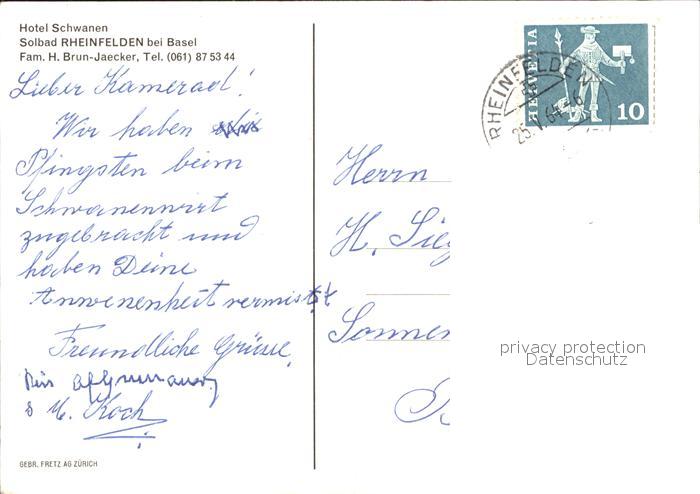 Hotel Schwanen
Solbad RHEINFELDEN bei Basel
Fam. H. Brun-Jaecker, Tel. (061) 87 53 44
Lieber Kamerad!
Wir haben
Pfingsten beim
Schwanenwirt
zugebracht und
haben Deine
Anwenenheit vermisst
Freundliche Grüsse,
M. Koch
GEBR. FRETZ AG ZÜRICH
HELVETIA
10
RHEINFELDEN
Herrn
H. Sieg
Sonnen
privacy protection
Datenschutz